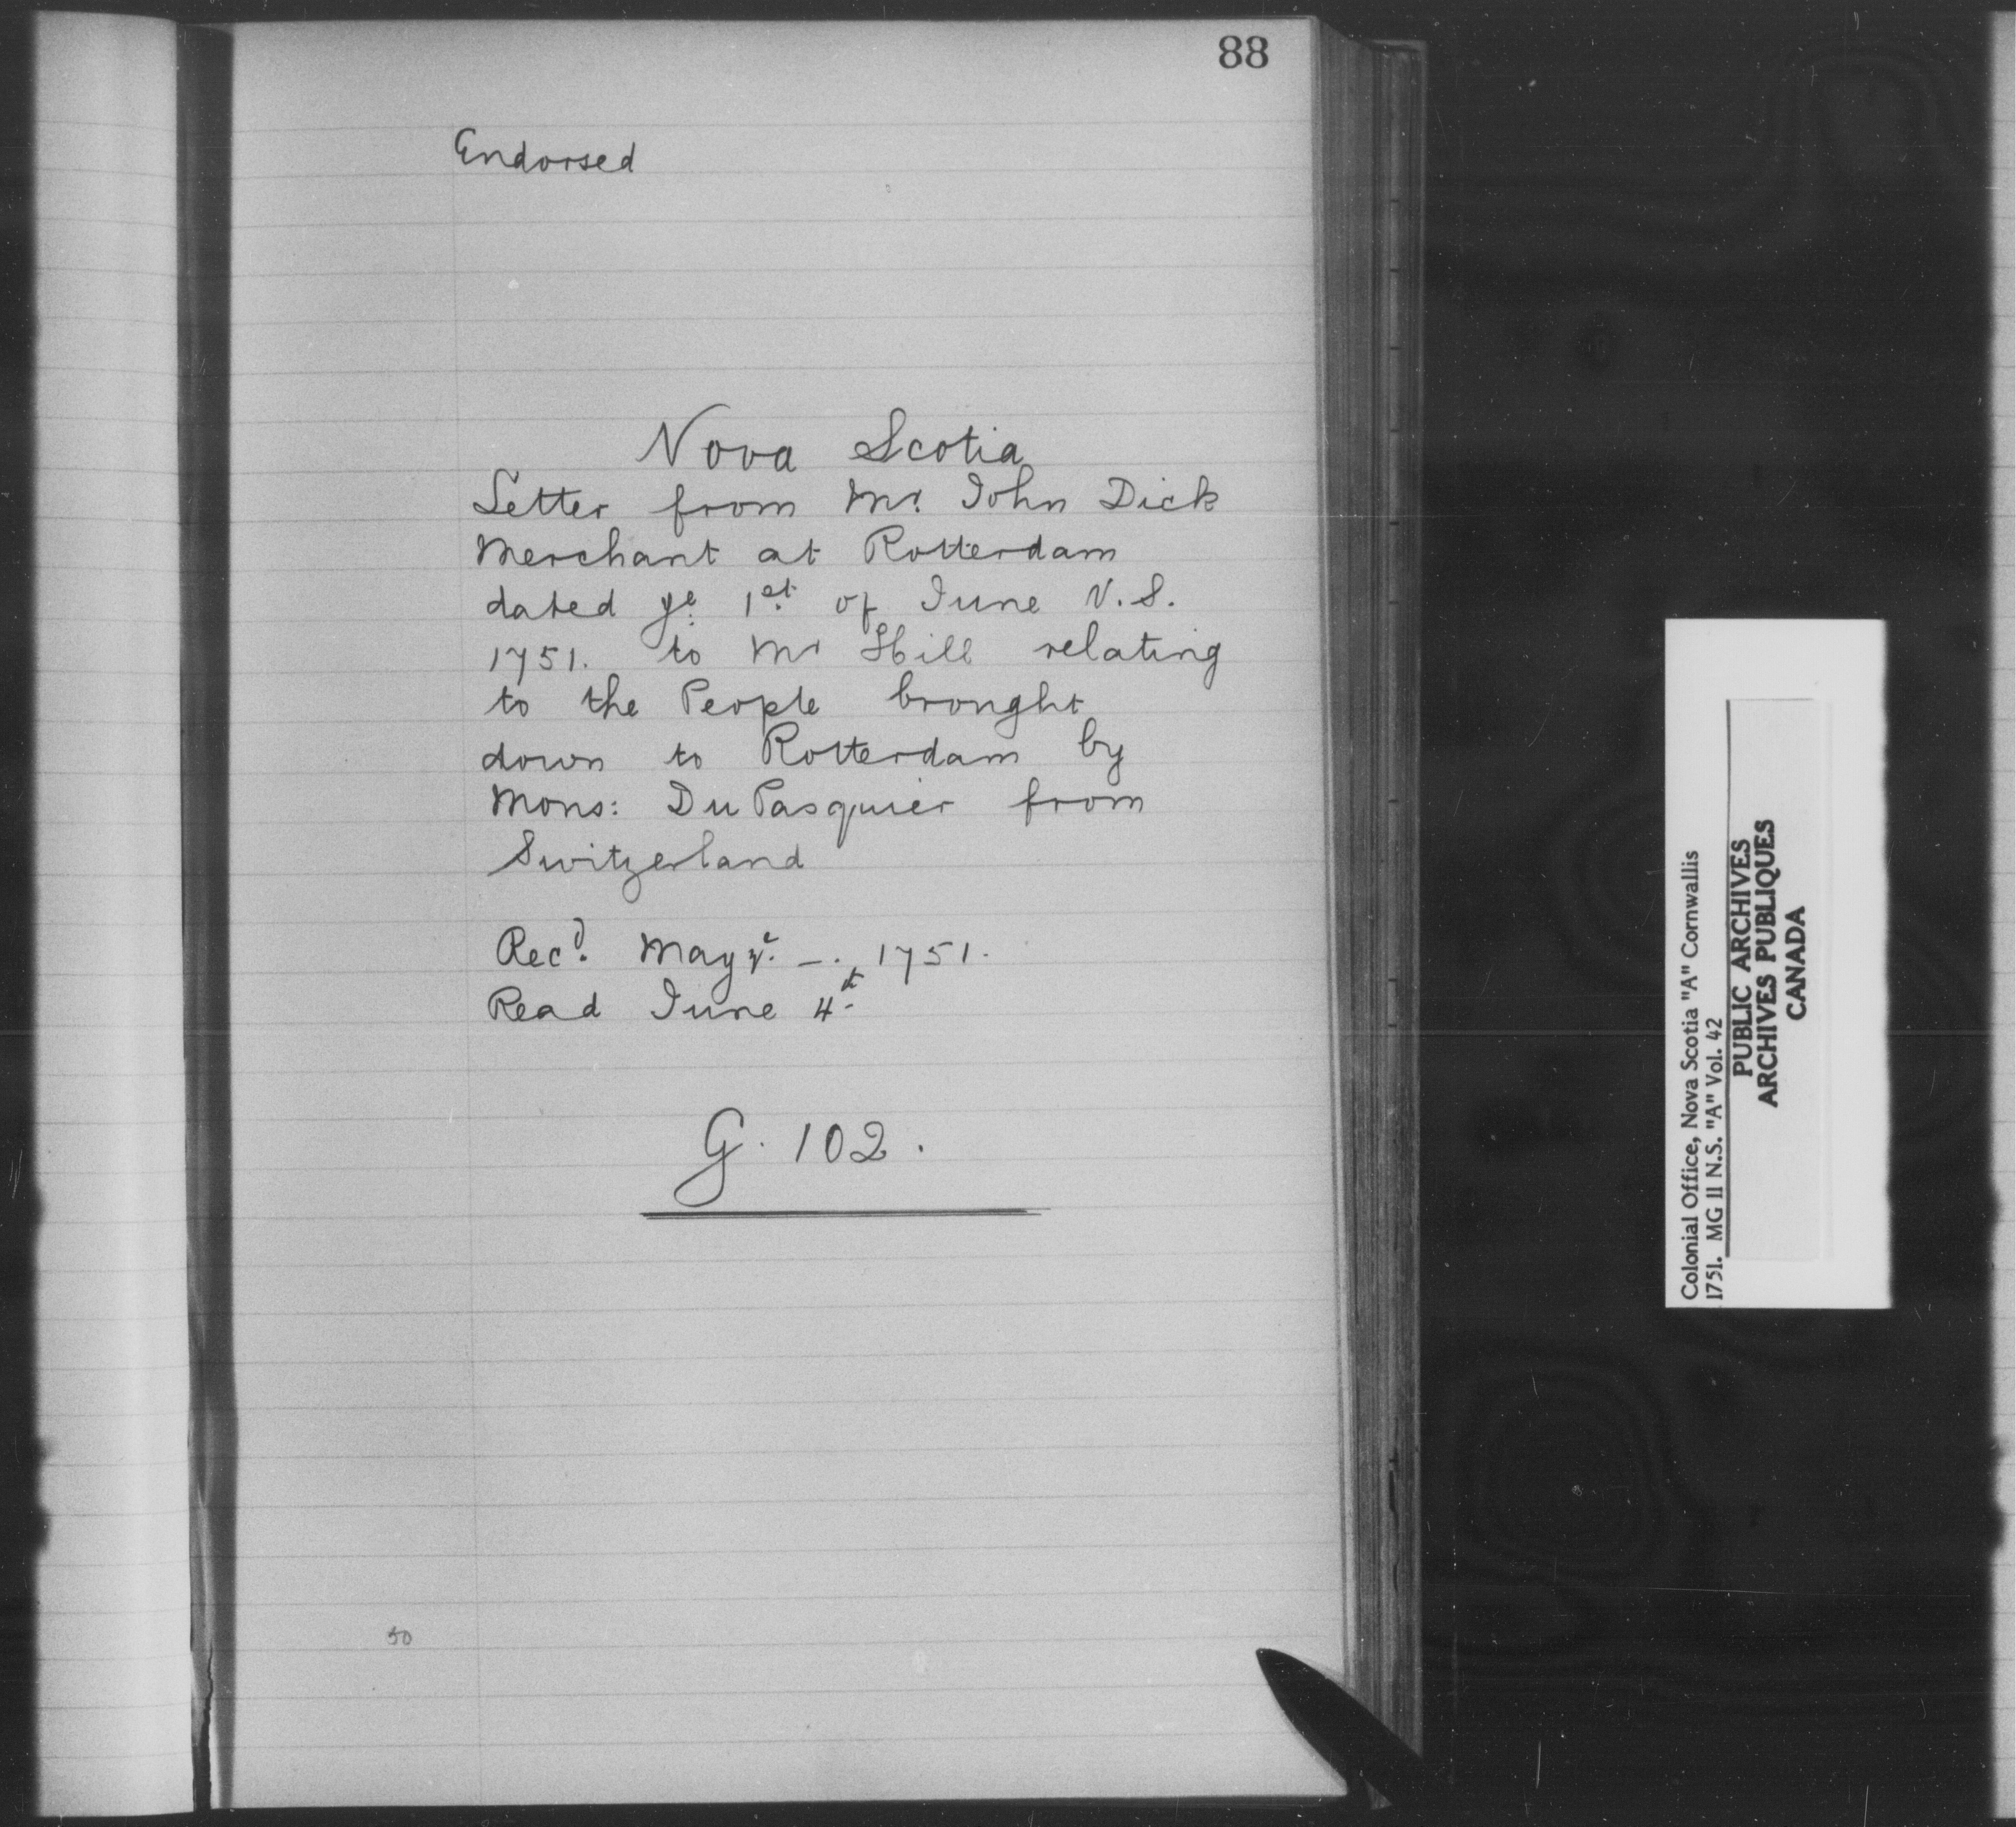 88
Endorsed
Nova Scotia
Letter from Mr. John Dick
Merchant at Rotterdam
dated ye. 1st. of June N.S.
1751. to Mr Hill relating
to the People brought
down to Rotterdam by
Mons: Du Pasquier from
Switzerland
Recd. May ye. —. 1751.
Read June 4th.
G. 102.
50
Colonial Office, Nova Scotia "A" Cornwallis
1751. MG 11 N.S. "A" Vol. 42
PUBLIC ARCHIVES
ARCHIVES PUBLIQUES
CANADA